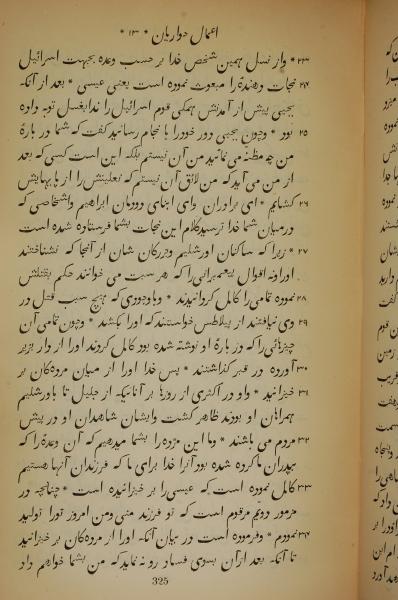 اعمال حواریان * ۱۳ *
۲۳ * واز نسل همین شخص خدا بر حسب وعده بجهت اسرائیل
۲۴ نجات دهندهٔ را مبعوث نموده است یعنی عیسی * بعد از آنکه
یحیی پیش از آمدنش همگی قوم اسرائیل را ندا بغسل توبه داده
۲۵ بود * وچون یحیی دور خود را بانجام رسانید گفت که شما در بارهٔ
من چه مظنه می نمائید من آن نیستم بلکه این است کسی که بعد
از من می آید که من لائق آن نیستم که نعلینش را از پایهایش
۲۶ کشایم * ای برادران وای ابنای دودمان ابراهیم واشخاصی که
درمیان شما خدا ترسید کلام این نجات بشما فرستاده شده است
۲۷ * زیرا که ساکنان اورشلیم وبزرکان شان از آنجا که نشناختند
اورا ونه اقوال پیغمبرانی را که هر سبت می خوانند حکم بقتلش
۲۸ نموده تمامی را کامل کردانیدند * وباوجودی که هیچ سبب قتل در
۲۹ وی نیافتند از پیلاطس خواستند که اورا بکشد * وچون تمامی آن
چیزهائی را که در بارهٔ او نوشته شده بود کامل کردند اورا از دار بزیر
۳۰ آورده در قبر گذاشتند * پس خدا اورا از میان مرده کان بر
۳۱ خیزانید * واو در اکثری از روزها بر آنانیکه از جلیل تا باورشلیم
همراهان او بودند ظاهر گشت وایشان شاهدان او در پیش
۳۲ مردم می باشند * وما این مژده را بشما میدهیم که آن وعدهٔ را که
بپدران ما کرده شده بود آنرا خدا برای ما که فرزندان آنها هستیم
۳۳ کامل نموده است که عیسی را بر خیزانیده است * چنانچه در
مزمور دویم مرقوم است که تو فرزند منی ومن امروز تورا تولید
۳۴ نمودم * وفرموده است در بیان آنکه اورا از مرده کان بر خیزانید
تا آنکه بعد از آن بسوی فساد رو نه نماید که من بشما خواهم داد
325